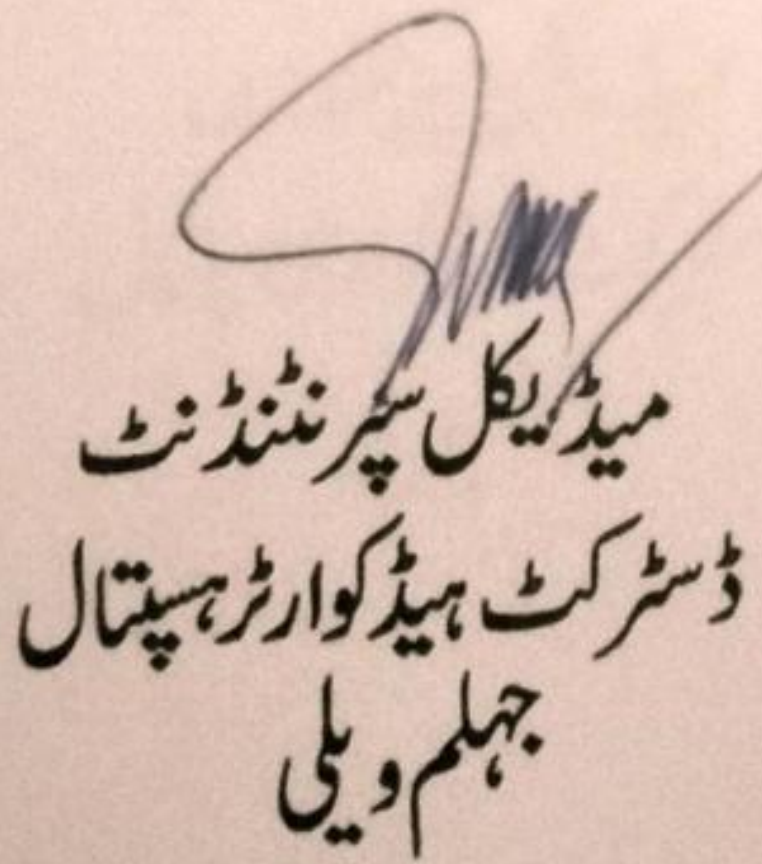 میڈیکل سپرنٹنڈنٹ
ڈسٹرکٹ ہیڈکوارٹر ہسپتال
جہلم ویلی